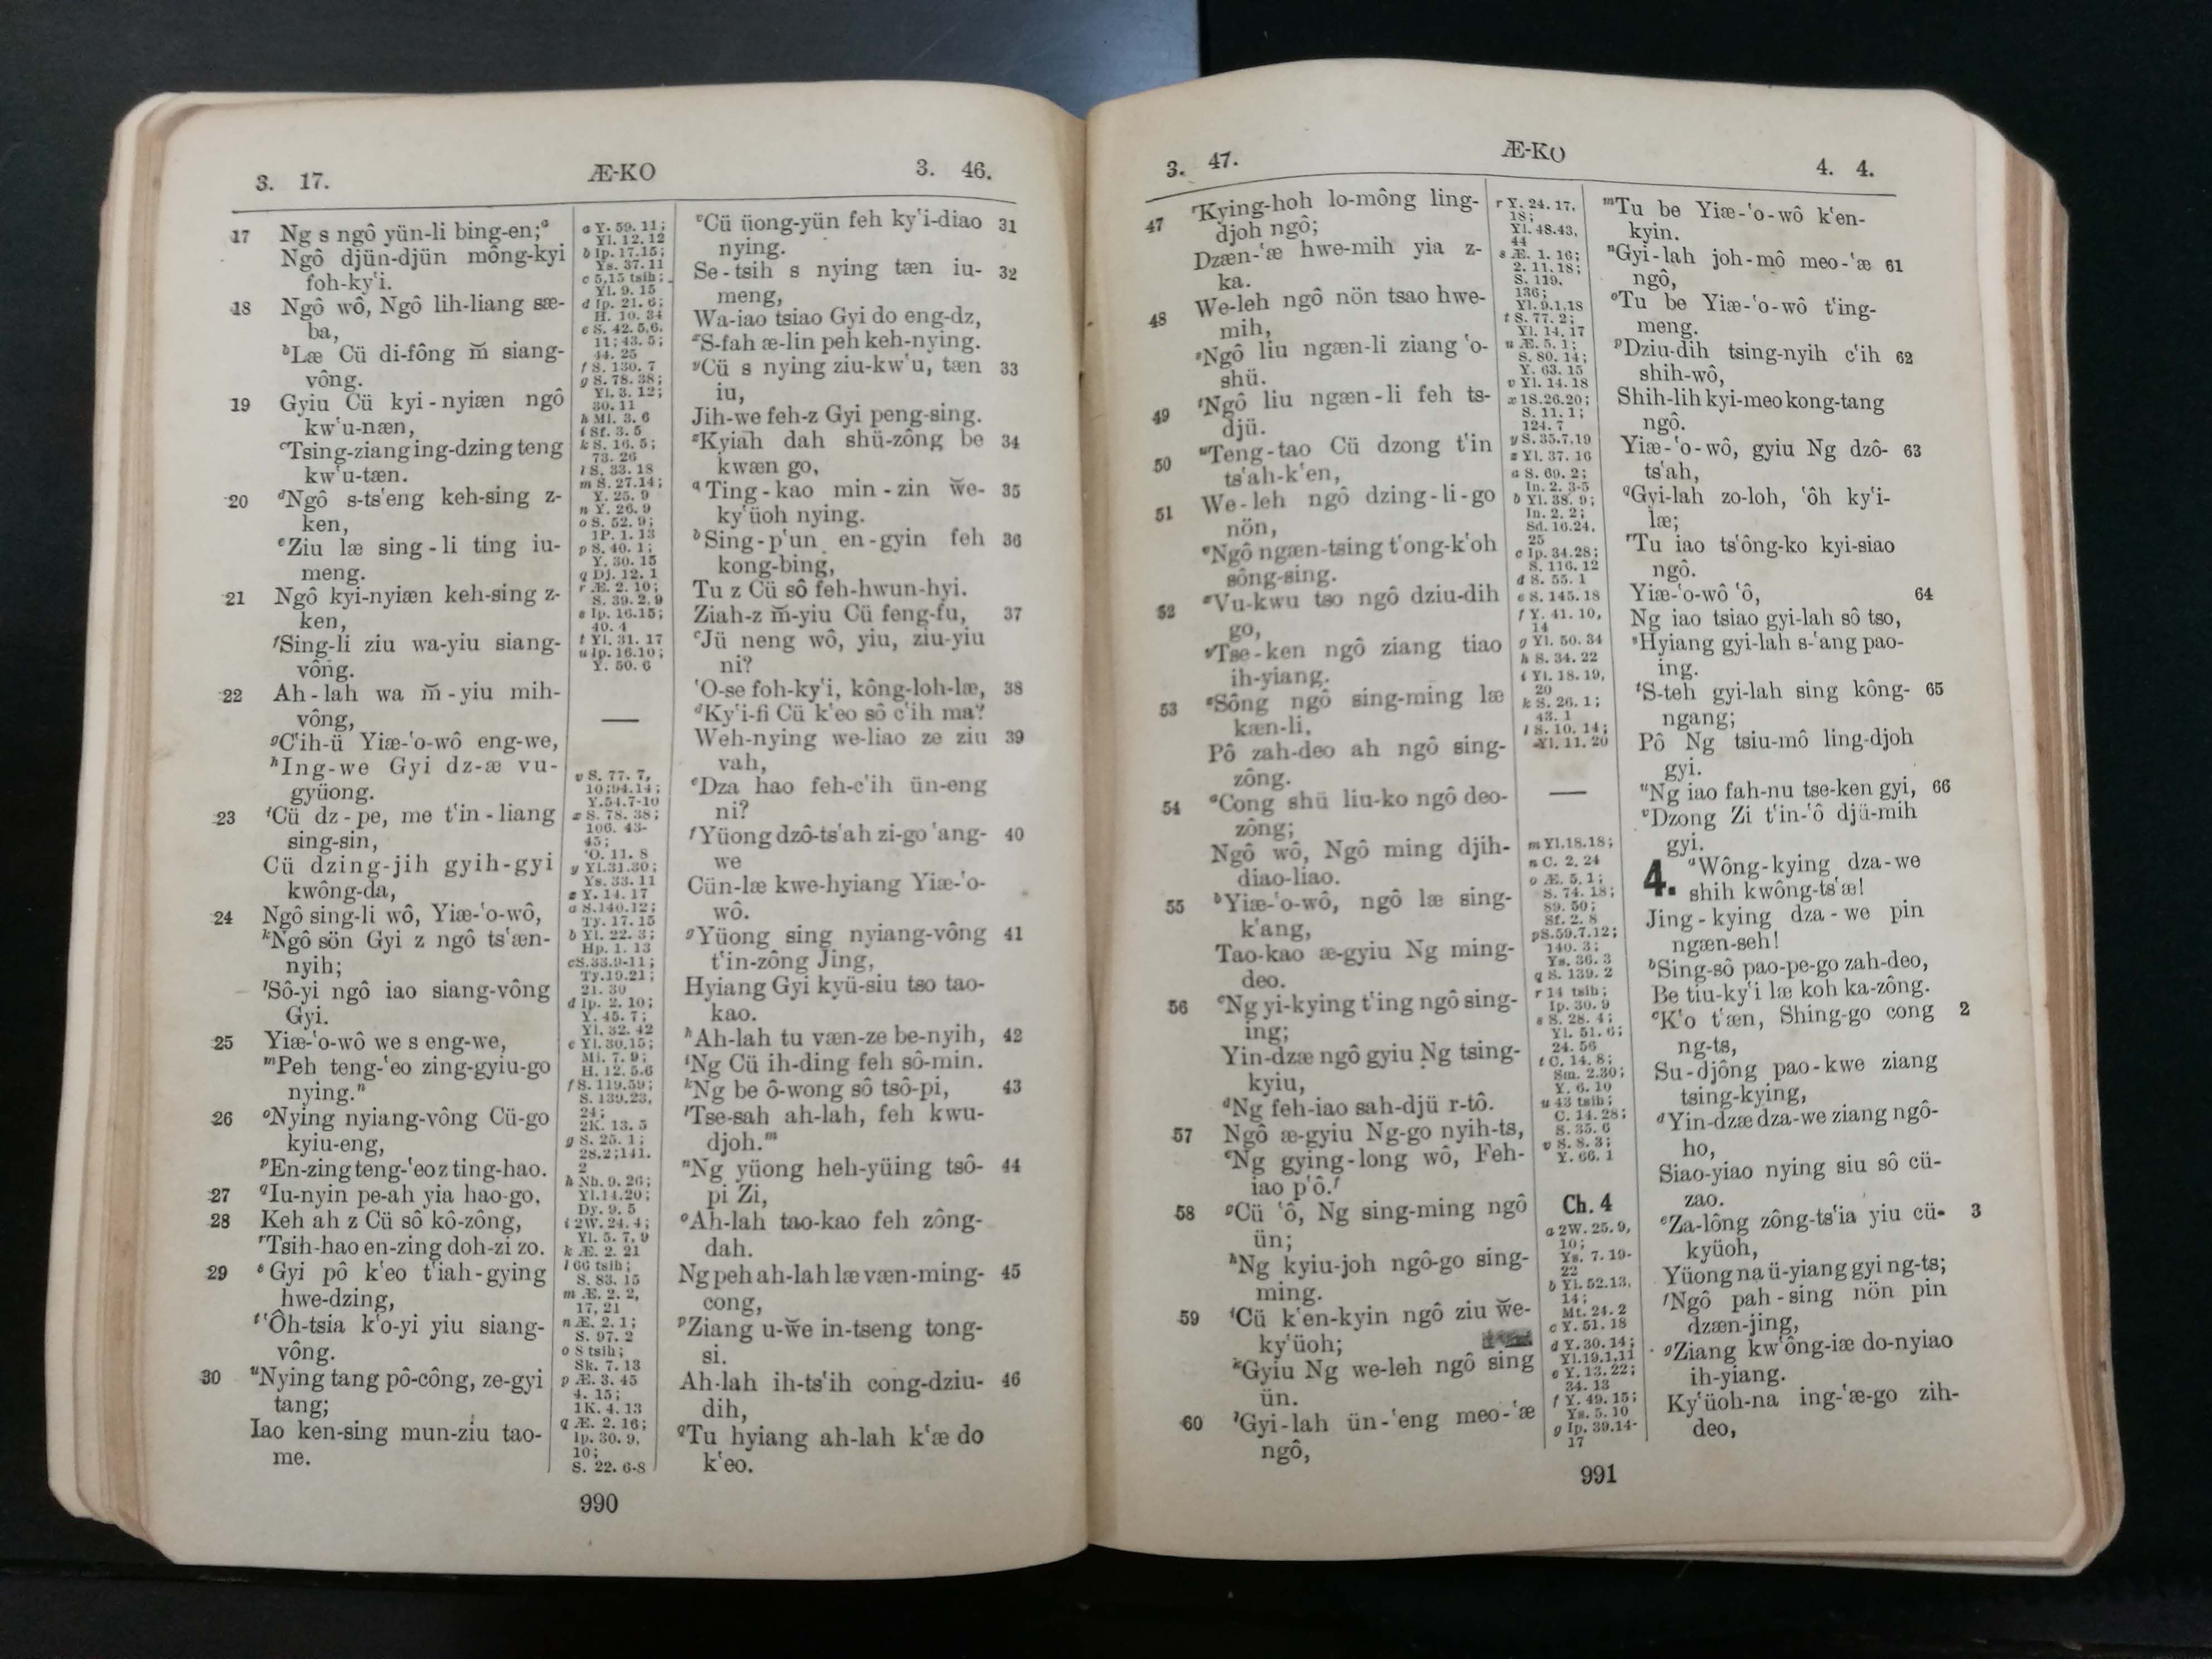 3. 17. Æ-KO 3. 46.
17 Ng s ngô yün-li bing-en;ᵃ
Ngô djün-djün mông-kyi
foh-ky‘i.
18 Ngô wô, Ngô lih-liang sæ-
ba,
ᵇLæ Cü di-fông m̆ siang-
vông.
19 Gyiu Cü kyi-nyiæn ngô
kw‘u-næn,
ᶜTsing-ziang ing-dzing teng
kw‘u-tæn.
20 ᵈNgô s-ts‘eng keh-sing z-
ken,
ᵉZiu læ sing-li ting iu-
meng.
21 Ngô kyi-nyiæn keh-sing z-
ken,
ᶠSing-li ziu wa-yiu siang-
vông.
22 Ah-lah wa m̆-yiu mih-
vông,
ᵍC‘ih-ü Yiæ-‘o-wô eng-we,
ʰIng-we Gyi dz-æ vu-
gyüong.
23 ⁱCü dz-pe, me t‘in-liang
sing-sin,
Cü dzing-jih gyih-gyi
kwông-da,
24 Ngô sing-li wô, Yiæ-‘o-wô,
ᵏNgô sön Gyi z ngô ts‘æn-
nyih;
ˡSô-yi ngô iao siang-vông
Gyi.
25 Yiæ-‘o-wô we s eng-we,
ᵐPeh teng-‘eo zing-gyiu-go
nying.ⁿ
26 ᵒNying nyiang-vông Cü-go
kyiu-eng,
ᵖEn-zing teng-‘eo z ting-hao.
27 ᑫIu-nyin pe-ah yia hao-go,
28 Keh ah z Cü sô kô-zông,
ʳTsih-hao en-zing doh-zi zo.
29 ˢGyi pô k‘eo t‘iah-gying
hwe-dzing,
ᵗ‘Ôh-tsia k‘o-yi yiu siang-
vông.
30 ᵘNying tang pô-công, ze-gyi
tang;
Iao ken-sing mun-ziu tao-
me.
a Y. 59. 11;
Yl. 12. 12
b Ip. 17.15;
Ys. 37. 11
c 5,15 tsih;
Yl. 9. 15
d Ip. 21. 6;
H. 10. 34
e S. 42. 5,6,
11; 43. 5;
44. 25
f S. 130. 7
g S. 78. 38;
Yl. 3. 12;
30. 11
h Ml. 3. 6
i Sf. 3. 5
k S. 16. 5;
73. 26
l S. 33. 18
m S. 27.14;
Y. 25. 9
n Y. 26. 9
o S. 52. 9;
1P. 1. 13
p S. 40. 1;
Y. 30. 15
q Dj. 12. 1
r Æ. 2. 10;
S. 39. 2,9
s Ip. 16.15;
40. 4
t Yl. 31. 17
u Ip. 16.10;
Y. 50. 6
v S. 77. 7,
10;94.14;
Y.54.7-10
x S. 78. 38;
106. 43-
45;
‘O. 11. 8
y Yl.31.30;
Ys. 33. 11
z Y. 14. 17
a S.140.12;
Ty. 17. 15
b Yl. 22. 3;
Hp. 1. 13
c S.33.9-11;
Ty.19.21;
21. 30
d Ip. 2. 10;
Y. 45. 7;
Yl. 32. 42
e Yl.30.15;
Mi. 7. 9;
H. 12. 5,6
f S. 119.59;
S. 139.23,
24;
2K. 13. 5
g S. 25. 1;
28.2;141.
2
h Nh. 9. 26;
Yl.14.20;
Dy. 9. 5
i 2W. 24. 4;
Yl. 5. 7, 9
k Æ. 2. 21
l 66 tsih;
S. 83. 15
m Æ. 2. 2,
17, 21
n Æ. 2. 1;
S. 97. 2
o 8 tsih;
Sk. 7. 13
p Æ. 3. 45
4. 15;
1K. 4. 13
q Æ. 2. 16;
Ip. 30. 9,
10;
S. 22. 6-8
ᵛCü üong-yün feh ky‘i-diao 31
nying.
Se-tsih s nying tæn iu- 32
meng,
Wa-iao tsiao Gyi do eng-dz,
ˣS-fah æ-lin peh keh-nying.
ʸCü s nying ziu-kw‘u, tæn 33
iu,
Jih-we feh-z Gyi peng-sing.
ᶻKyiah dah shü-zông be 34
kwæn go,
ᵃTing-kao min-zin w̆e- 35
ky‘üoh nying.
ᵇSing-p‘un en-gyin feh 36
kong-bing,
Tu z Cü sô feh-hwun-hyi.
Ziah-z m̆-yiu Cü feng-fu, 37
ᶜJü neng wô, yiu, ziu-yiu
ni?
‘O-se foh-ky‘i, kông-loh-læ, 38
ᵈKy‘i-fi Cü k‘eo sô c‘ih ma?
Weh-nying we-liao ze ziu 39
vah,
ᵉDza hao feh-c‘ih ün-eng
ni?
ᶠYüong dzô-ts‘ah zi-go ‘ang- 40
we
Cün-læ kwe-hyiang Yiæ-‘o-
wô.
ᵍYüong sing nyiang-vông 41
t‘in-zông Jing,
Hyiang Gyi kyü-siu tso tao-
kao.
ʰAh-lah tu væn-ze be-nyih, 42
ⁱNg Cü ih-ding feh sô-min.
ᵏNg be ô-wong sô tsô-pi, 43
ˡTse-sah ah-lah, feh kwu-
djoh.ᵐ
ⁿNg yüong heh-yüing tsô- 44
pi Zi,
ᵒAh-lah tao-kao feh zông-
dah.
Ng peh ah-lah læ væn-ming- 45
cong,
ᵖZiang u-w̆e in-tseng tong-
si.
Ah-lah ih-ts‘ih cong-dziu- 46
dih,
ᑫTu hyiang ah-lah k‘æ do
k‘eo.
990
3. 47. Æ-KO 4. 4.
47 ʳKying-hoh lo-mông ling-
djoh ngô;
Dzæn-‘æ hwe-mih yia z-
ka.
48 We-leh ngô nön tsao hwe-
mih,
ˢNgô liu ngæn-li ziang ‘o-
shü.
49 ᵗNgô liu ngæn-li feh ts-
djü.
50 ᵘTeng-tao Cü dzong t‘in
ts‘ah-k‘en,
51 We-leh ngô dzing-li-go
nön,
ᵛNgô ngæn-tsing t‘ong-k‘oh
sông-sing.
52 ˣVu-kwu tso ngô dziu-dih
go,
ʸTse-ken ngô ziang tiao
ih-yiang.
53 ᶻSông ngô sing-ming læ
kæn-li,
Pô zah-deo ah ngô sing-
zông.
54 ᵃCong shü liu-ko ngô deo-
zông;
Ngô wô, Ngô ming djih-
diao-liao.
55 ᵇYiæ-‘o-wô, ngô læ sing-
k‘ang,
Tao-kao æ-gyiu Ng ming-
deo.
56 ᶜNg yi-kying t‘ing ngô sing-
ing;
Yin-dzæ ngô gyiu Ng tsing-
kyiu,
ᵈNg feh-iao sah-djü r-tô.
57 Ngô æ-gyiu Ng-go nyih-ts,
ᵉNg gying-long wô, Feh-
iao p‘ô.ᶠ
58 ᵍCü ‘ô, Ng sing-ming ngô
ün;
ʰNg kyiu-joh ngô-go sing-
ming.
59 ⁱCü k‘en-kyin ngô ziu w̆e-
ky‘üoh;
ᵏGyiu Ng we-leh ngô sing
ün.
60 ˡGyi-lah ün-‘eng meo-‘æ
ngô,
r Y. 24. 17,
18;
Yl. 48.43,
44
s Æ. 1. 16;
2. 11. 18;
S. 119.
136;
Yl.9.1,18
t S. 77. 2;
Yl. 14. 17
u Æ. 5. 1;
S. 80. 14;
Y. 63. 15
v Yl. 14. 18
x 1S.26.20;
S. 11. 1;
124. 7
y S. 35.7,19
z Yl. 37. 16
a S. 69. 2;
In. 2. 3-5
b Yl. 38. 9;
In. 2. 2;
Sd. 16.24,
25
c Ip. 34.28;
S. 116. 12
d S. 55. 1
e S. 145. 18
f Y. 41. 10,
14
g Yl. 50. 34
h S. 34. 22
i Yl. 18. 19,
20
k S. 26. 1;
43. 1
l S. 10. 14;
Yl. 11. 20
m Yl.18.18;
n C. 2. 24
o Æ. 5. 1;
S. 74. 18;
89. 50;
Sf. 2. 8
p S.59.7,12;
140. 3;
Ys. 36. 3
q S. 139. 2
r 14 tsih;
Ip. 30. 9
s S. 28. 4;
Yl. 51. 6;
24. 56
t C. 14. 8;
Sm. 2.30;
Y. 6. 10
u 43 tsih;
C. 14. 28;
S. 35. 6
v S. 8. 3;
Y. 66. 1
Ch. 4
a 2W. 25. 9,
10;
Ys. 7. 19-
22
b Yl.52.13,
14;
Mt. 24. 2
c Y. 51. 18
d Y.30.14;
Yl.19.1,11
e Y. 13. 22;
34. 13
f Y. 49. 15;
Ys. 5. 10
g Ip. 39.14-
17
ᵐTu be Yiæ-‘o-wô k‘en-
kyin.
ⁿGyi-lah joh-mô meo-‘æ 61
ngô,
ᵒTu be Yiæ-‘o-wô t‘ing-
meng.
ᵖDziu-dih tsing-nyih c‘ih 62
shih-wô,
Shih-lih kyi-meo kong-tang
ngô.
Yiæ-‘o-wô, gyiu Ng dzô- 63
ts‘ah,
ᑫGyi-lah zo-loh, ‘ôh ky‘i-
læ;
ʳTu iao ts‘ông-ko kyi-siao
ngô.
Yiæ-‘o-wô ‘ô, 64
Ng iao tsiao gyi-lah sô tso,
ˢHyiang gyi-lah s-‘ang pao-
ing.
ᵗS-teh gyi-lah sing kông- 65
ngang;
Pô Ng tsiu-mô ling-djoh
gyi.
ᵘNg iao fah-nu tse-ken gyi, 66
ᵛDzong Zi t‘in-‘ô djü-mih
gyi.
4. ᵃWông-kying dza-we
shih kwông-ts‘æ!
Jing-kying dza-we pin
ngæn-seh!
ᵇSing-sô pao-pe-go zah-deo,
Be tiu-ky‘i læ koh ka-zông.
ᶜK‘o t‘æn, Shing-go cong 2
ng-ts,
Su-djông pao-kwe ziang
tsing-kying,
ᵈYin-dzæ dza-we ziang ngô-
ho,
Siao-yiao nying siu sô cü-
zao.
ᵉZa-lông zông-ts‘ia yiu cü- 3
kyüoh,
Yüong na ü-yiang gyi ng-ts;
ᶠNgô pah-sing nön pin
dzæn-jing,
ᵍZiang kw‘ông-iæ do-nyiao
ih-yiang.
Ky‘üoh-na ing-‘æ-go zih-
deo,
991